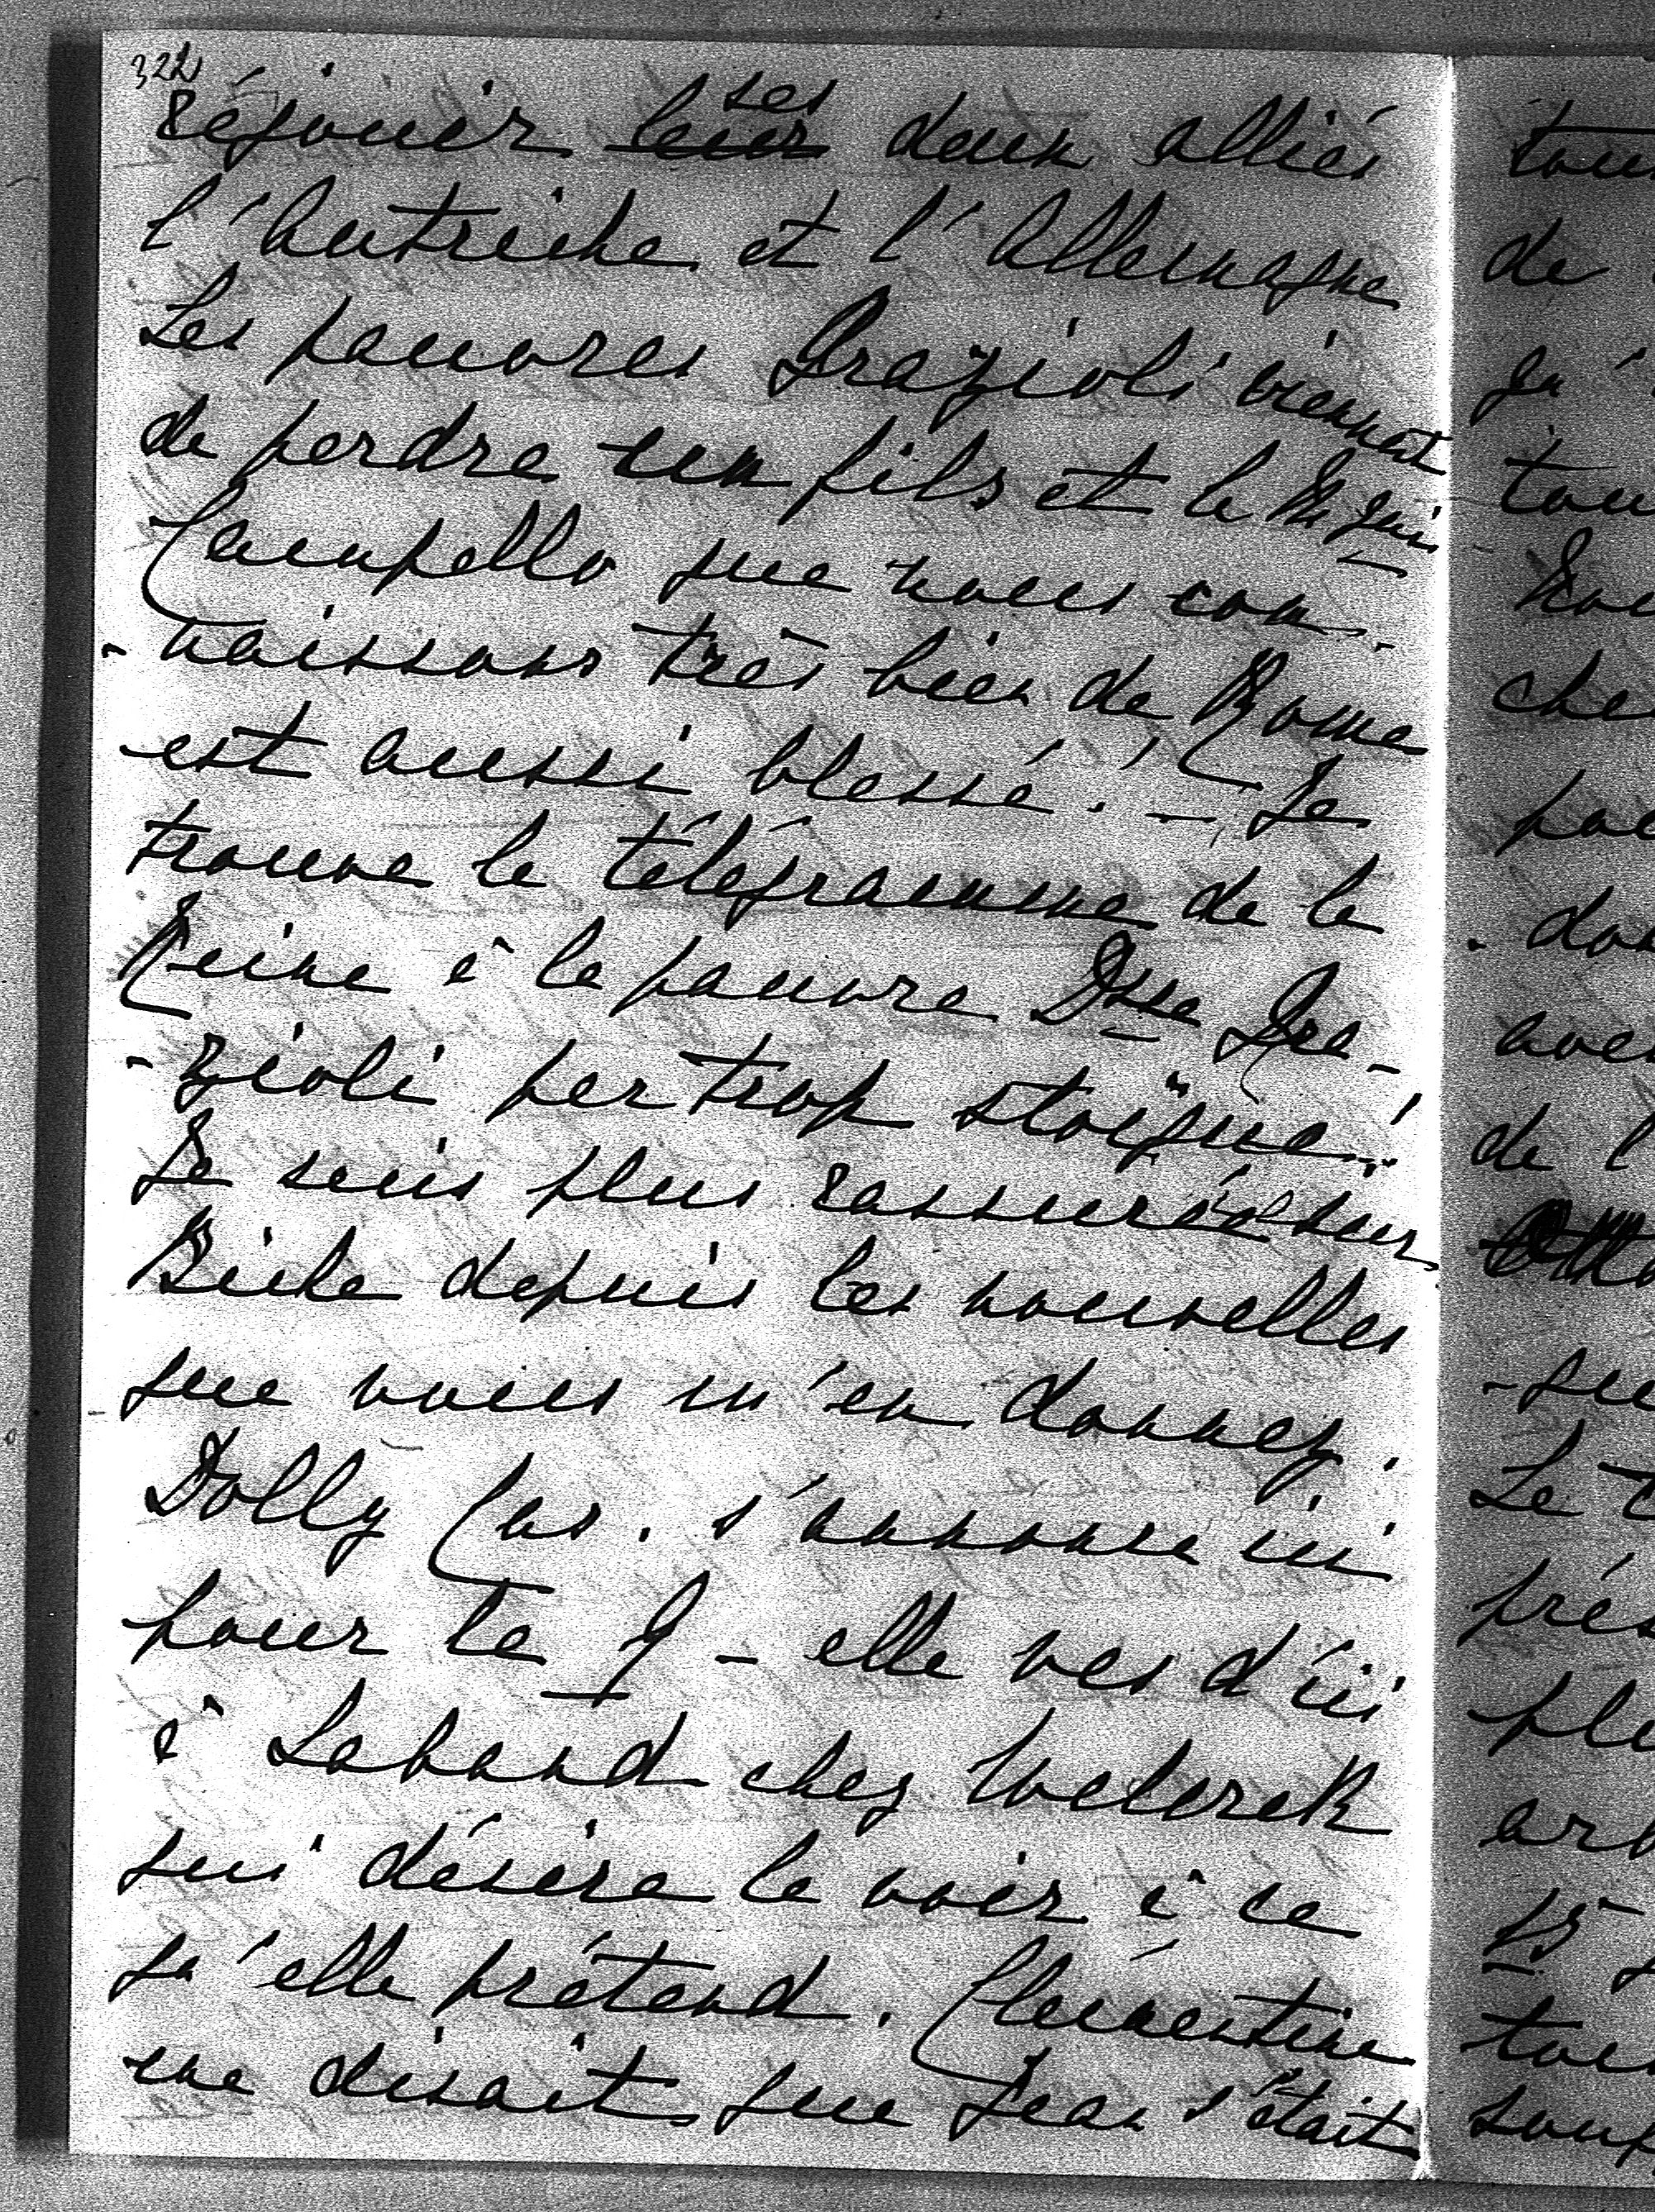 322
réjouir ~~leur~~ ses deux alliés
l'Autriche et l'Allemagne
Les pauvres Grazioli viennent
de perdre un fils et le Mquis
Campello que nous con-
-naissons très bien de Rome
est aussi blessé! — Je
trouve le télégramme de la
Reine à la pauvre Dsse Gra-
-zioli par trop stoïque!
Je suis plus rassurée sur
Biche depuis les nouvelles
que vous m'en donnez.
Dolly Car. s'annonce ici
pour le 9 — elle va d'ici
à Laband chez Welczek
qui désire la voir à ce
qu'elle prétend. Clémentine
me disait que Jean s'était